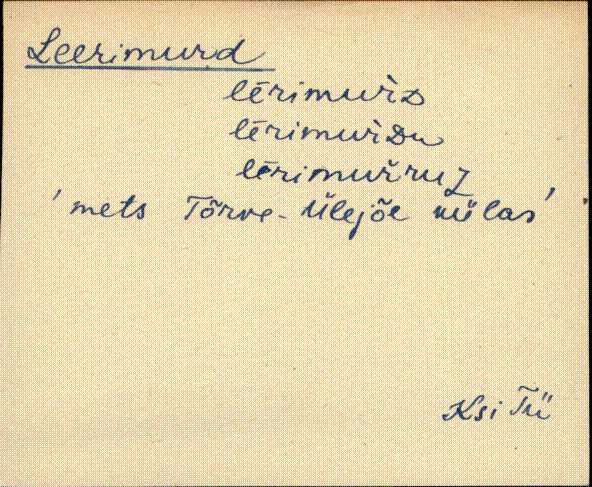 Leerimurd
lērimur̀D
lērimur̀Du
lērimur̆ruʒ
'mets Tõrve-Ülejõe külas'
Ksi Tü